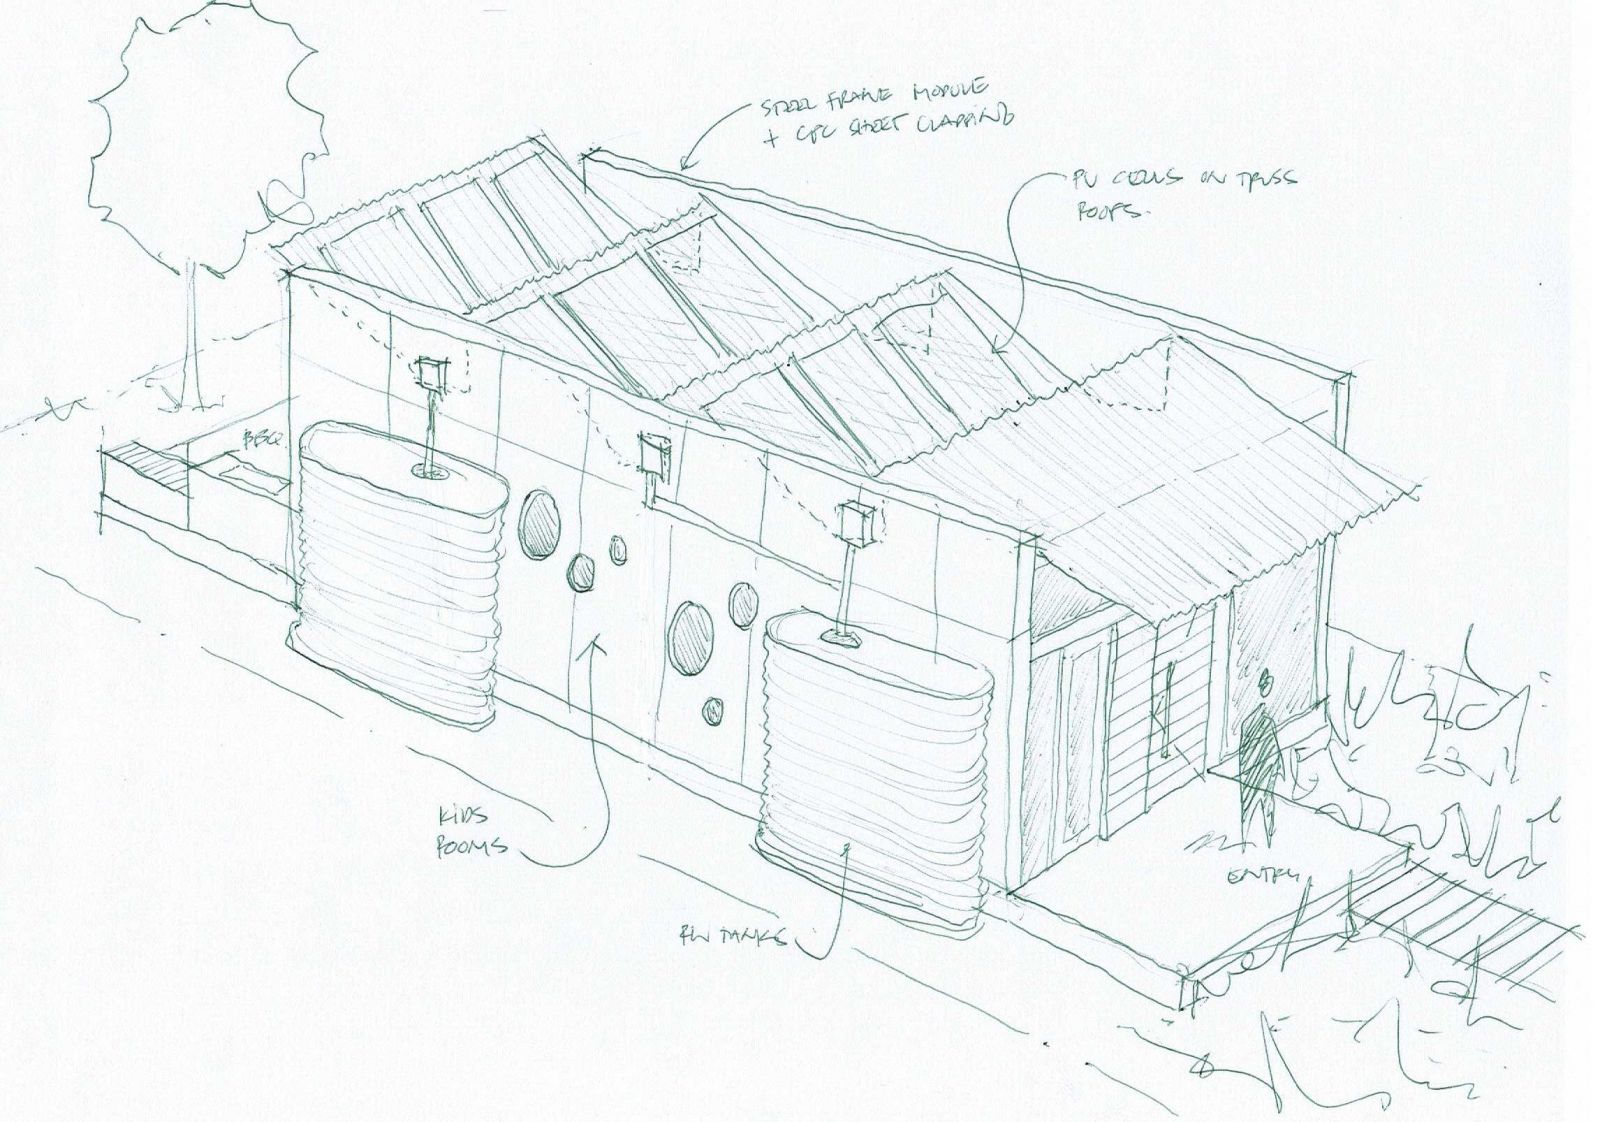 STEEL FRAME MODULE
+ CFC SHEET CLADDING
PV CELLS ON TRUSS
ROOFS.
BBQ
KIDS
ROOMS
RW TANKS
ENTRY